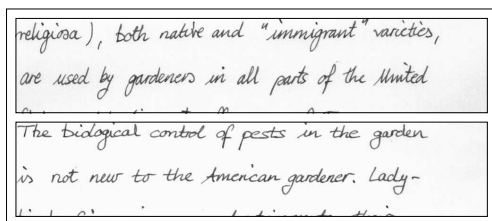 religiosa), both native and "immigrant" varieties,
are used by gardeners in all parts of the United
The biological control of pests in the garden
is not new to the American gardener. Lady-